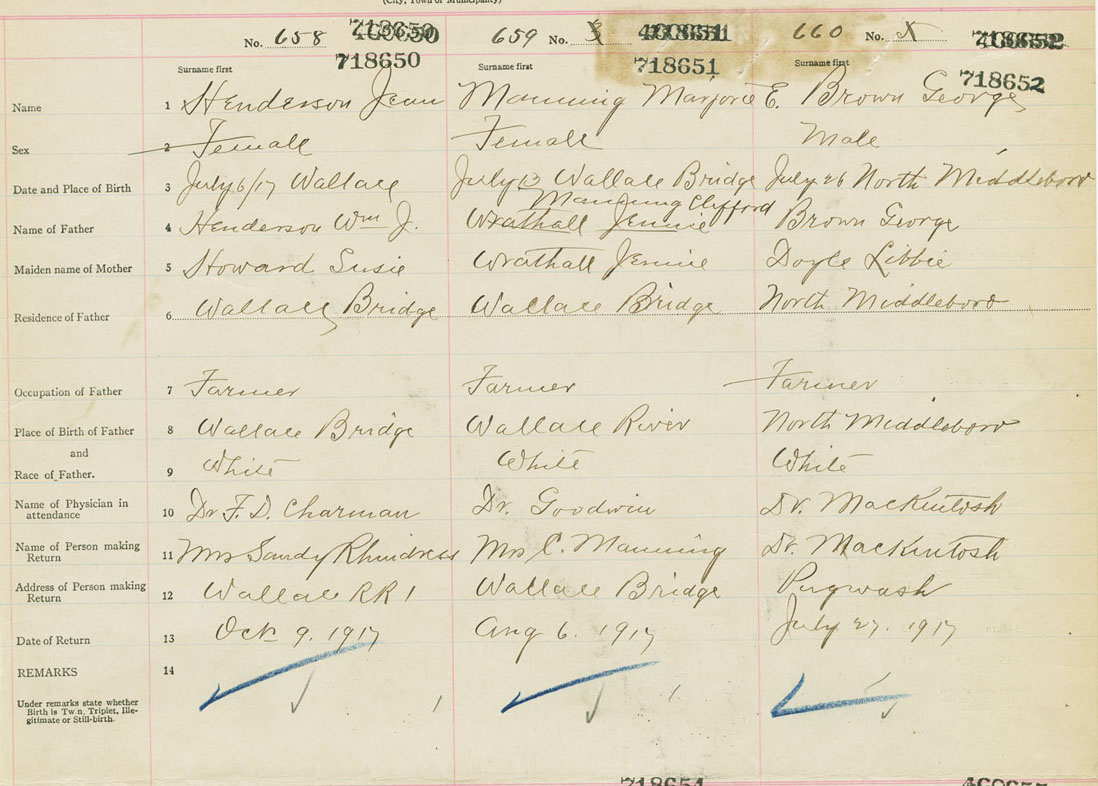 (City, Town or Municipality)
No. 658 718650
718650
659 No. 718651
660 No. X 718652
718652
Surname first Surname first Surname first
Name 1 Henderson Jean Manning Marjorie E. Brown George
Sex 2 Female Female Male
Date and Place of Birth 3 July 6/17 Wallace July 13 Wallace Bridge July 26 North Middleboro
Manning Clifford
Name of Father 4 Henderson Wm J. Wrathall Jennie Brown George
Maiden name of Mother 5 Howard Susie Wrathall Jennie Doyle Libbie
Residence of Father 6 Wallace Bridge Wallace Bridge North Middleboro
Occupation of Father 7 Farmer Farmer Farmer
Place of Birth of Father 8 Wallace Bridge Wallace River North Middleboro
and
Race of Father. 9 White White White
Name of Physician in
attendance 10 Dr F. D. Charman Dr. Goodwin Dr. MacKintosh
Name of Person making
Return 11 Mrs Sandy Rhindress Mrs C. Manning Dr. MacKintosh
Address of Person making
Return 12 Wallace RR 1 Wallace Bridge Pugwash
Date of Return 13 Oct 9. 1917 Aug 6. 1917 July 27. 1917
REMARKS 14
Under remarks state whether
Birth is Twin, Triplet, Ille-
gitimate or Still-birth.